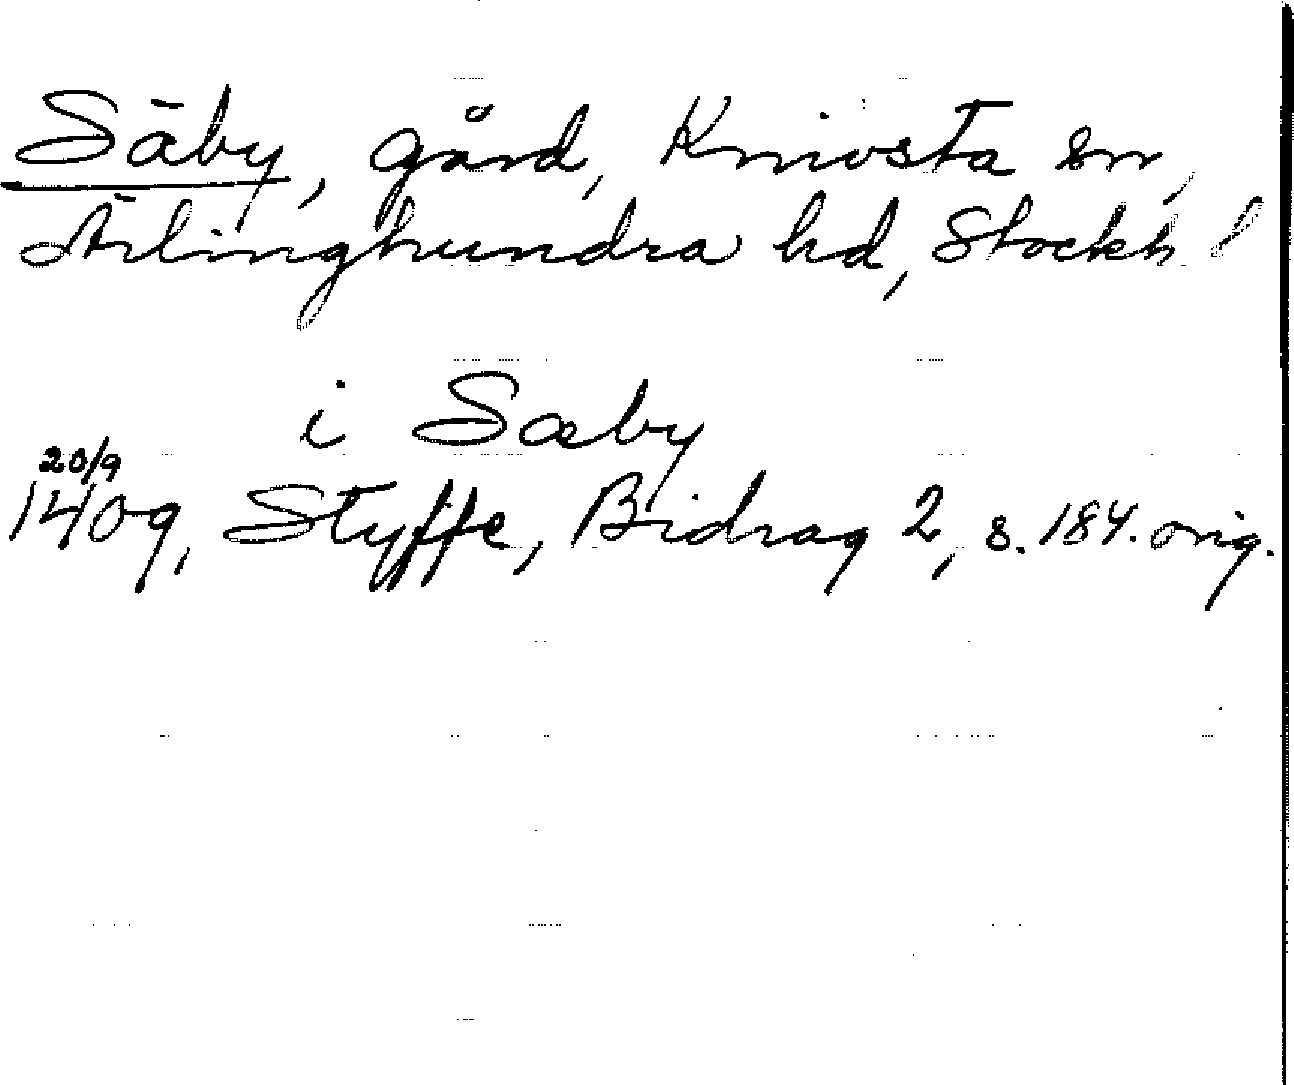 Säby, gård, Knivsta sn,
Ärlinghundra hd, Stockh. l
i Sæby
20/9
1409, Styffe, Bidrag 2, s. 184. orig.